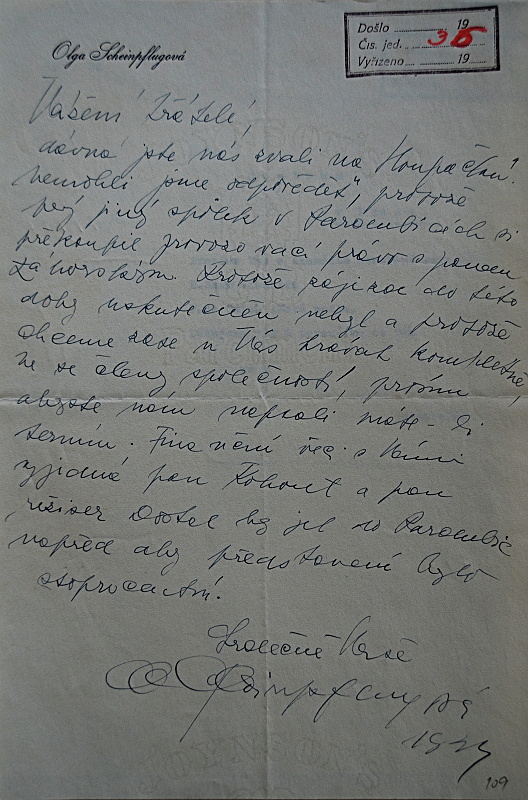 Olga Scheinpflugová
Došlo 19
Čís. jed. 35
Vyřízeno 19
Vážení přátelé,
dávno jste nás zvali na "Houpačku".
Nemohli jsme odpovědět, protože
prý jiný spolek v Pardubicích si
překoupil provozovací právo s panem
Záhorským. Protože zájezd do této
doby uskutečněn nebyl a protože
chceme zase u Vás hrávat kompletně,
se členy společnosti, prosím
abyste nám napsali máte-li
termín. Finanční věci s Vámi
vyjedná pan Kohout a pan
režisér Dostal by jel do Pardubic
napřed aby představení bylo
stoprocentní.
Srdečně Vaše
O Scheinpflugová
19
109